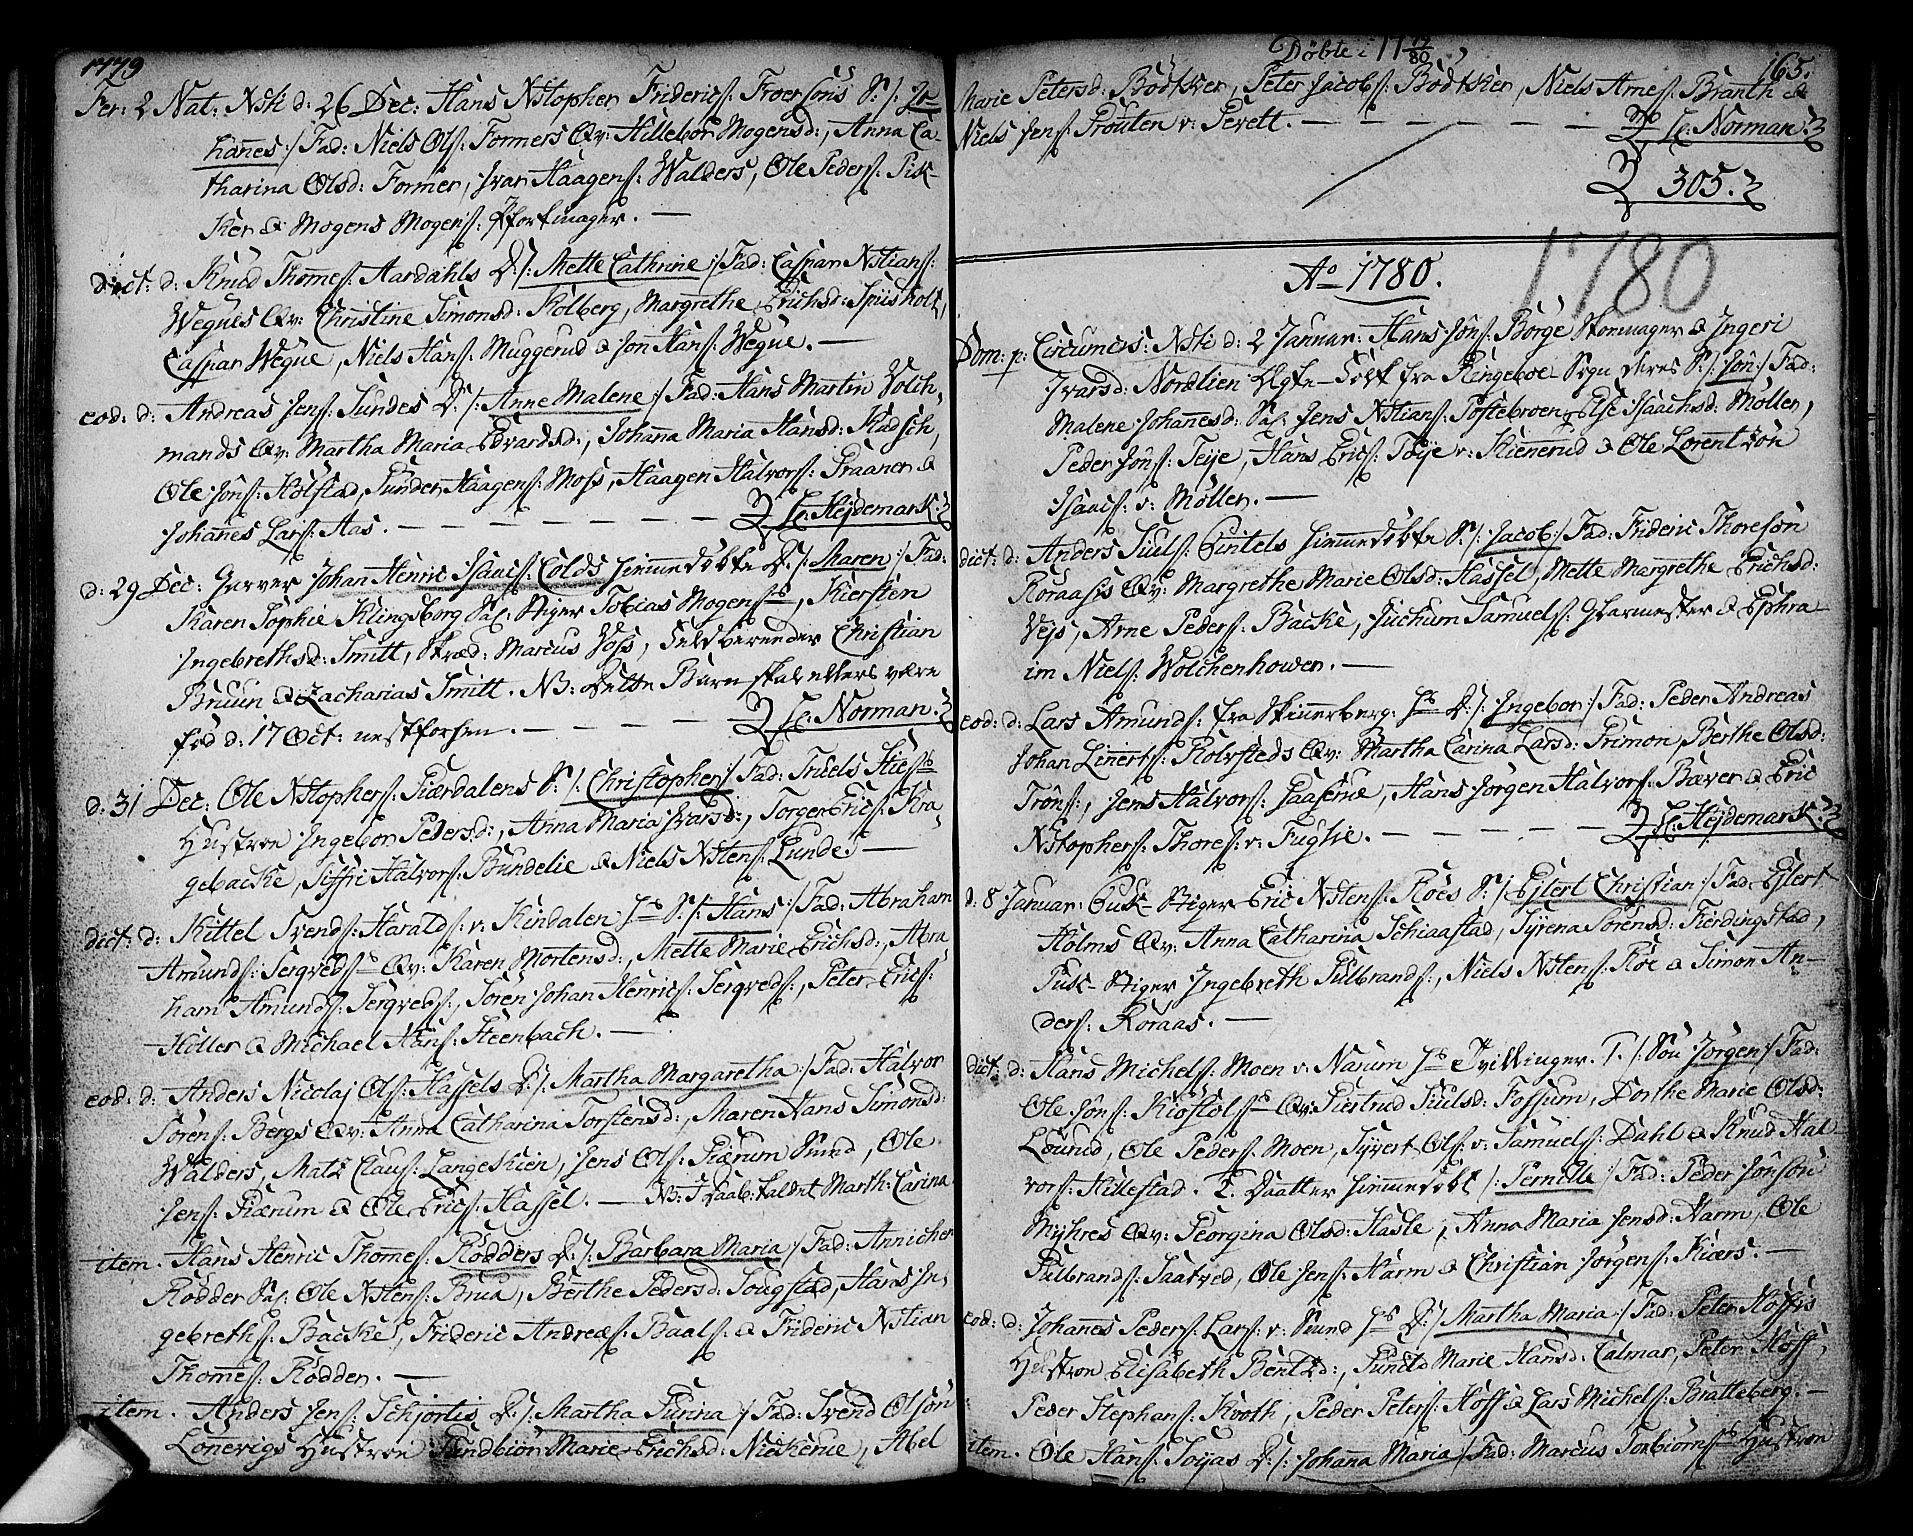 1779
Fer: 2 Nat: Xsti d: 26 Dec: Hans Xstopher Frideriks: Froersöns S: /: Jo-
hannes :/ Fad: Niels Ols: Formers Qv: Hillebor Mogensd:, Anna Ca-
tharina Olsd: Former, Ivar Haagens: Walders, Ole Peders: Pisk-
ker & Mogens Mogens: Pfortmager. —
dict: d: Knud Thomes: Aardahls D: /: Mette Cathrine :/ Fad: Caspar Xstians:
Wegues Qv: Christine Simonsd: Kolberg, Margrethe Erichsd: Spüsholt,
Caspar Wegue, Niels Hans: Muggerud & Jon Hans: Wegue. —
eod: d: Andreas Jens: Sundes D: /: Anne Malene :/ Fad: Hans Martin Volch-
mands Qv: Martha Maria Edvardsd:, Johanna Maria Hansd: Kladsch,
Ole Jöns: Holstad, Gunder Haagens: Moss, Haagen Halvors: Praaner &
Johannes Lars: Aas. — L: Hejdemark.
d: 29 Dec: Garver Johan Henric Isacs: Colds hiemmedöbte D: /: Maren :/ Fad:
Karen Sophie Klingsborg Sal: Stiger Tobias Mogens:, Kiersten
Ingebrethsd: Smitt, Skræd: Marcus Voss, Feldberender Christian
Bruun & Zacharias Smitt. NB: dette Barn skal ellers være
föd d: 17 Oct: nestforhen. — L: Norman.
d: 31 Dec: Ole Xstophers: Giærdalens S: /: Christopher :/ Fad: Truels
Hustroe Ingebor Pedersd:, Anna Maria Ivarsd:, Torger Erics: Kra-
gebacke, Siffri Halvors: Bundelie & Niels Xstens: Lunde. —
dict: d: Kittel Svends: Haralds: v: Kindalen S: /: Hans :/ Fad: Abraham
Amunds: Sergveds Qv: Karen Mortensd:, Mette Marie Erichsd:, Abra
ham Amunds: Sergveds:, Sören Johan Henrics: Sergveds:, Peter Erics:
Höller & Michael Hans: Steenbach. —
eod: d: Anders Nicolaj Ols: Hassels D: /: Martha Margaretha :/ Fad: Halvor
Sörens: Bergs Qv: Anna Catharina Torstensd:, Maren Hans Simonsd:
Walders, Mats Claus: Langeskien, Jens Ols: Giærum Smed, Ole
Jens: Giærum & Ole Erics: Hassel. — NB: i Daab: kaldet Marth: Carina
item. Hans Henric Thomes: Rödders D: /: Barbara Maria :/ Fad: Annicher
Rödder Sal: Ole Xstens: Brua, Berthe Pedersd: Sougstad, Hans In-
gebreths: Backe, Frideric Andreæs: Baals: & Frideric Xstian
Thomes: Rödder. —
item. Anders Jens: Schjortis D: /: Martha Gurina :/ Fad: Svend Olsön
Lonevigs Hustroe Marie Erichsd: Nickerue, Abel
Döbte i 17 79/80
165.
Marie Petersd: Bödtker, Peter Jacobs: Bödtker, Niels Arnes: Branth &
Niels Jens: Prouten v: Pevett. — L: Norman.
305.
Ao 1780. 1780
Dom: p: Circumcis: Xsti d: 2 Januar: Hans Jöns: Börge Skomager & Ingeri
Ivarsd: Nordlien Ægte-Folk fra Ringeboe Sogn deres S: /: Jön :/ Fad:
Malene Johannesd: Sal: Jens Xstians: Postebroen, Else Isaachsd: Möller,
Peder Jöns: Teije, Hans Erics: Töije v: Kienerud & Ole Lorentzön
Isaacs: v: Möller. —
dict: d: Anders Juels: Qvintels hiemmedöbte S: /: Jacob :/ Fad: Frideric Thoresön
Roraases Qv: Margrethe Marie Olsd: Hassel, Mette Margrethe Erichsd:
Vejs, Arne Peders: Backe, Juchum Samuels: Glarmester & Ephra-
im Niels: Wolchenhower. —
eod: d: Lars Amunds: fra Skinnerberg: D: /: Ingebor :/ Fad: Peder Andreas
Johan Linerts: Rolvsteds Qv: Martha Carina Larsd: Primon, Berthe Olsd:
Tröns:, Jens Halvors: Paaserue, Hans Jörgen Halvors: Bæver & Eric
Xstophers: Thores: v: Fuglie. — L: Hejdemark.
d: 8 Januar: Puk-Stiger Eric Xstens: Roes S: /: Ejlert Christian :/ Fad: Ejlert
Holms Qv: Anna Catharina Schiaastad, Syrena Sörensd: Fierdingstad,
Puk-Stiger Ingebreth Gulbrands:, Niels Xstens: Roe & Simon An-
ders: Roraas. —
dict: d: Hans Michels: Moen v: Narum Tvillinger. T. /: Sön Jörgen :/ Fad:
Ole Jöns: Kiöstols: Qv: Giertrud Juulsd: Fossum, Dorthe Marie Olsd:
Löurud, Ole Peders: Moen, Syvert Ols: v: Samuels: Dahl & Knud Hal-
vors: Hillestad. T. Daatter hiemmedöbt /: Pernille :/ Fad: Peder Jönsön
Myhres Qv: Georgina Olsd: Hasle, Anna Maria Jensd: Harm, Ole
Gulbrands: Saatved, Ole Jens: Harm & Christian Jörgens: Kiærs. —
eod: d: Johanes Peders: Lars: v: Smund D: /: Martha Maria :/ Fad: Peter Hoffis
Hustroe Elisabeth Bentzd:, Gunild Marie Hansd: Calmar, Peter Hoff,
Peder Stephans: Kooth, Peder Peters: Hoff & Lars Michels: Bratteberg. —
item. Ole Hans: Toyas D: /: Johana Maria :/ Fad: Marcus Torbiörns: Hustroe